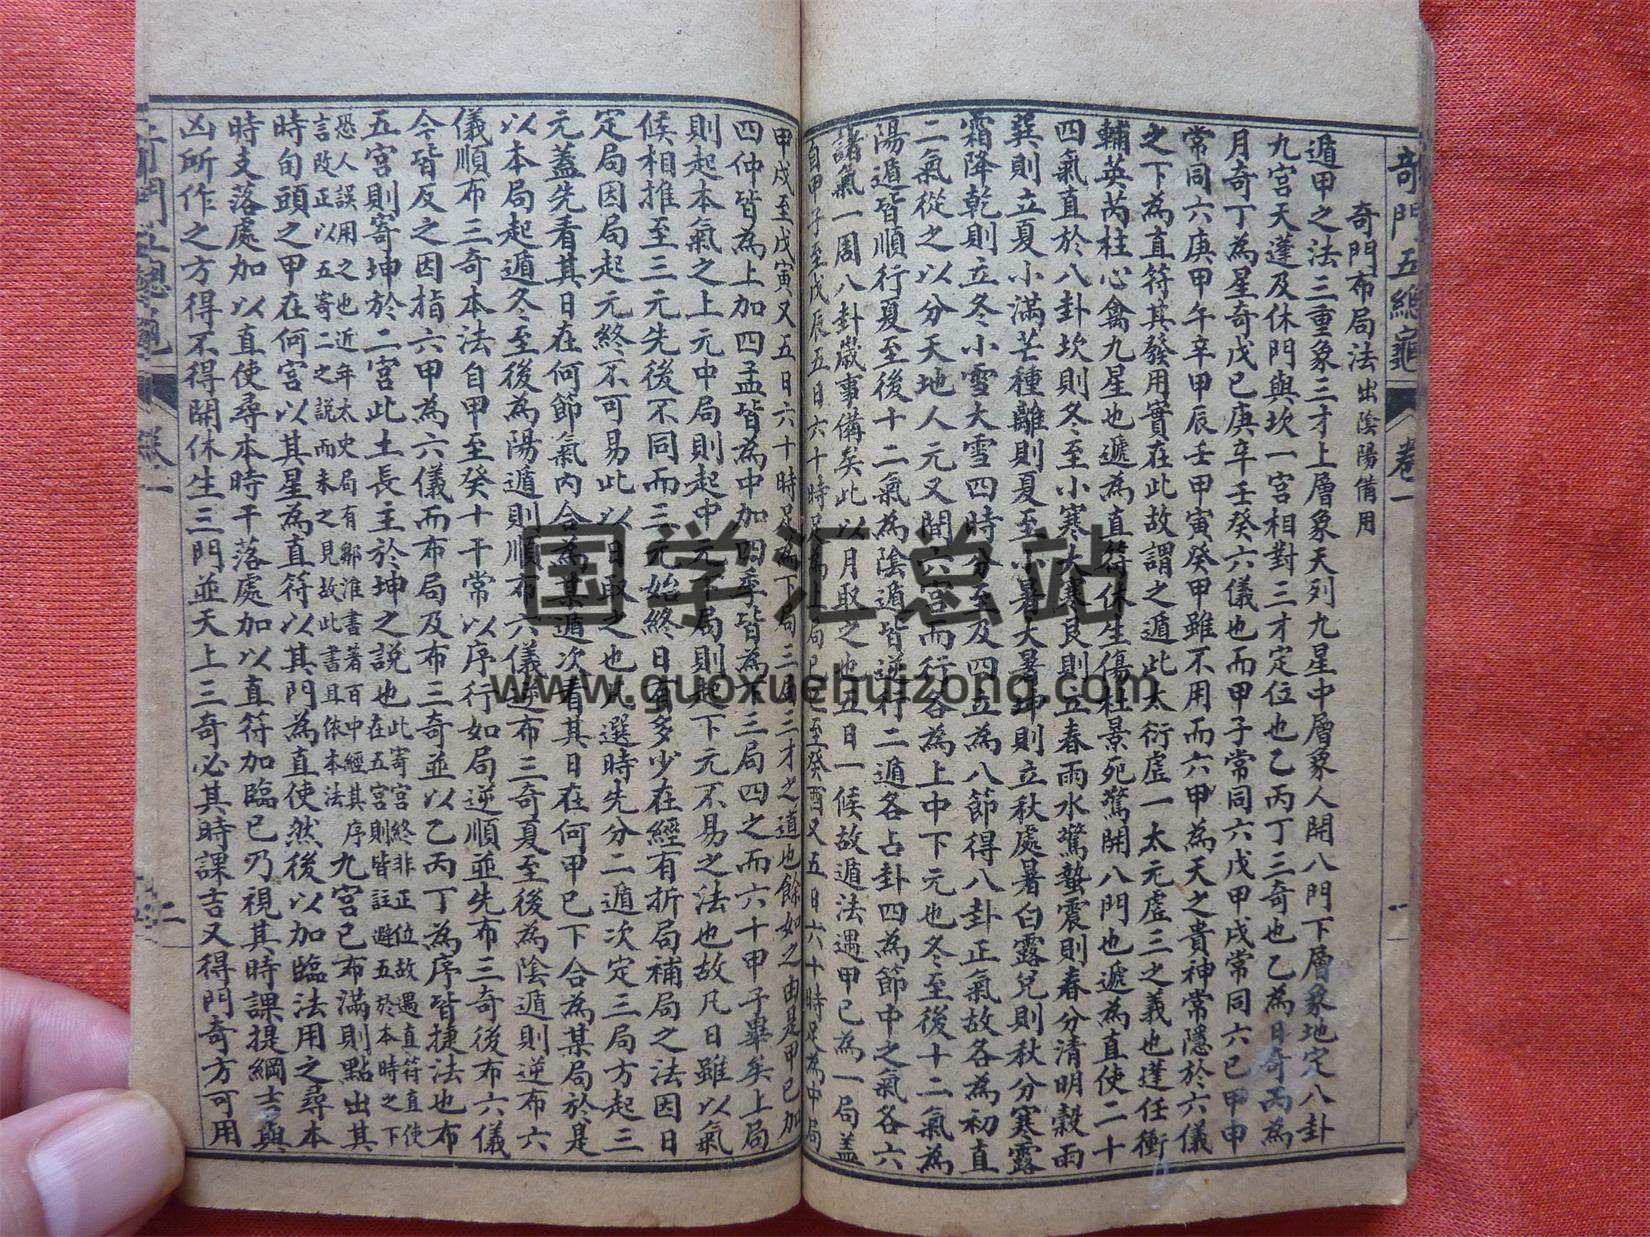 奇門五總龜
卷一
奇門布局法出陰陽備用
遁甲之法三重象三才上層象天列九星中層象人開八門下層象地定八卦
九宮天蓬及休門與坎一宮相對三才定位也乙丙丁三奇也乙為日奇丙為
月奇丁為星奇戊已庚辛壬癸六儀也而甲子常同六戊甲戌常同六已甲申
常同六庚甲午辛甲辰壬甲寅癸甲雖不用而六甲為天之貴神常隱於六儀
之下為直符其發用實在此故謂之遁此太衍虛一太元虛三之義也蓬任衝
輔英芮柱心禽九星也遞為直符休生傷杜景死驚開八門也遞為直使二十
四氣直於八卦坎則冬至小寒大寒艮則立春雨水驚蟄震則春分清明穀雨
巽則立夏小滿芒種離則夏至小暑大暑坤則立秋處暑白露兌則秋分寒露
霜降乾則立冬小雪大雪四時分至及四立為八節得八卦正氣故各為初直
二氣從之以分天地人元又開六宮而行各為上中下元也冬至後十二氣為
陽遁皆順行夏至後十二氣為陰遁皆逆行二遁各占卦四為節中之氣各六
諸氣一周八卦歲事備矣此以月取之也五日一候故遁法遇甲已為一局蓋
自甲子至戊辰五日六十時足為上局已巳至癸酉又五日六十時足為中局
甲戌至戊寅又五日六十時足為下局三局三才之道也餘如之由是甲已加
四仲皆為上加四孟皆為中加四季皆為下三局四之而六十甲子畢矣上局
則起本氣之上元中局則起中元下局則起下元不易之法也故凡日雖以氣
候相推至三元先後不同而三元始終日有多少在經有折局補局之法因日
定局因局起元終不可易此以日取之也凡選時先分二遁次定三局方起三
元蓋先看其日在何節氣內合為某遁次看其日在何甲已下合為某局於是
以本局起遁冬至後為陽遁則順布六儀逆布三奇夏至後為陰遁則逆布六
儀順布三奇本法自甲至癸十干常以序行如局逆順並先布三奇後布六儀
今皆反之因指六甲為六儀而布局及布三奇並以乙丙丁為序皆捷法也布
五宮則寄坤於二宮此土長主於坤之說也此寄宮終非正位故遇直符直使在五宮則皆註避五於本時之下
恐人誤用之也近年太史局有鄒淮書著百中經其序言改正以五寄二之說而未之見故此書且依本法九宮已布滿則點出其
時旬頭之甲在何宮以其星為直符以其門為直使然後以加臨法用之尋本
時支落處加以直使尋本時干落處加以直符加臨已乃視其時課提綱吉與
凶所作之方得不得開休生三門並天上三奇必其時課吉又得門奇方可用
二
国学汇总站
www.guoxuehuizong.com